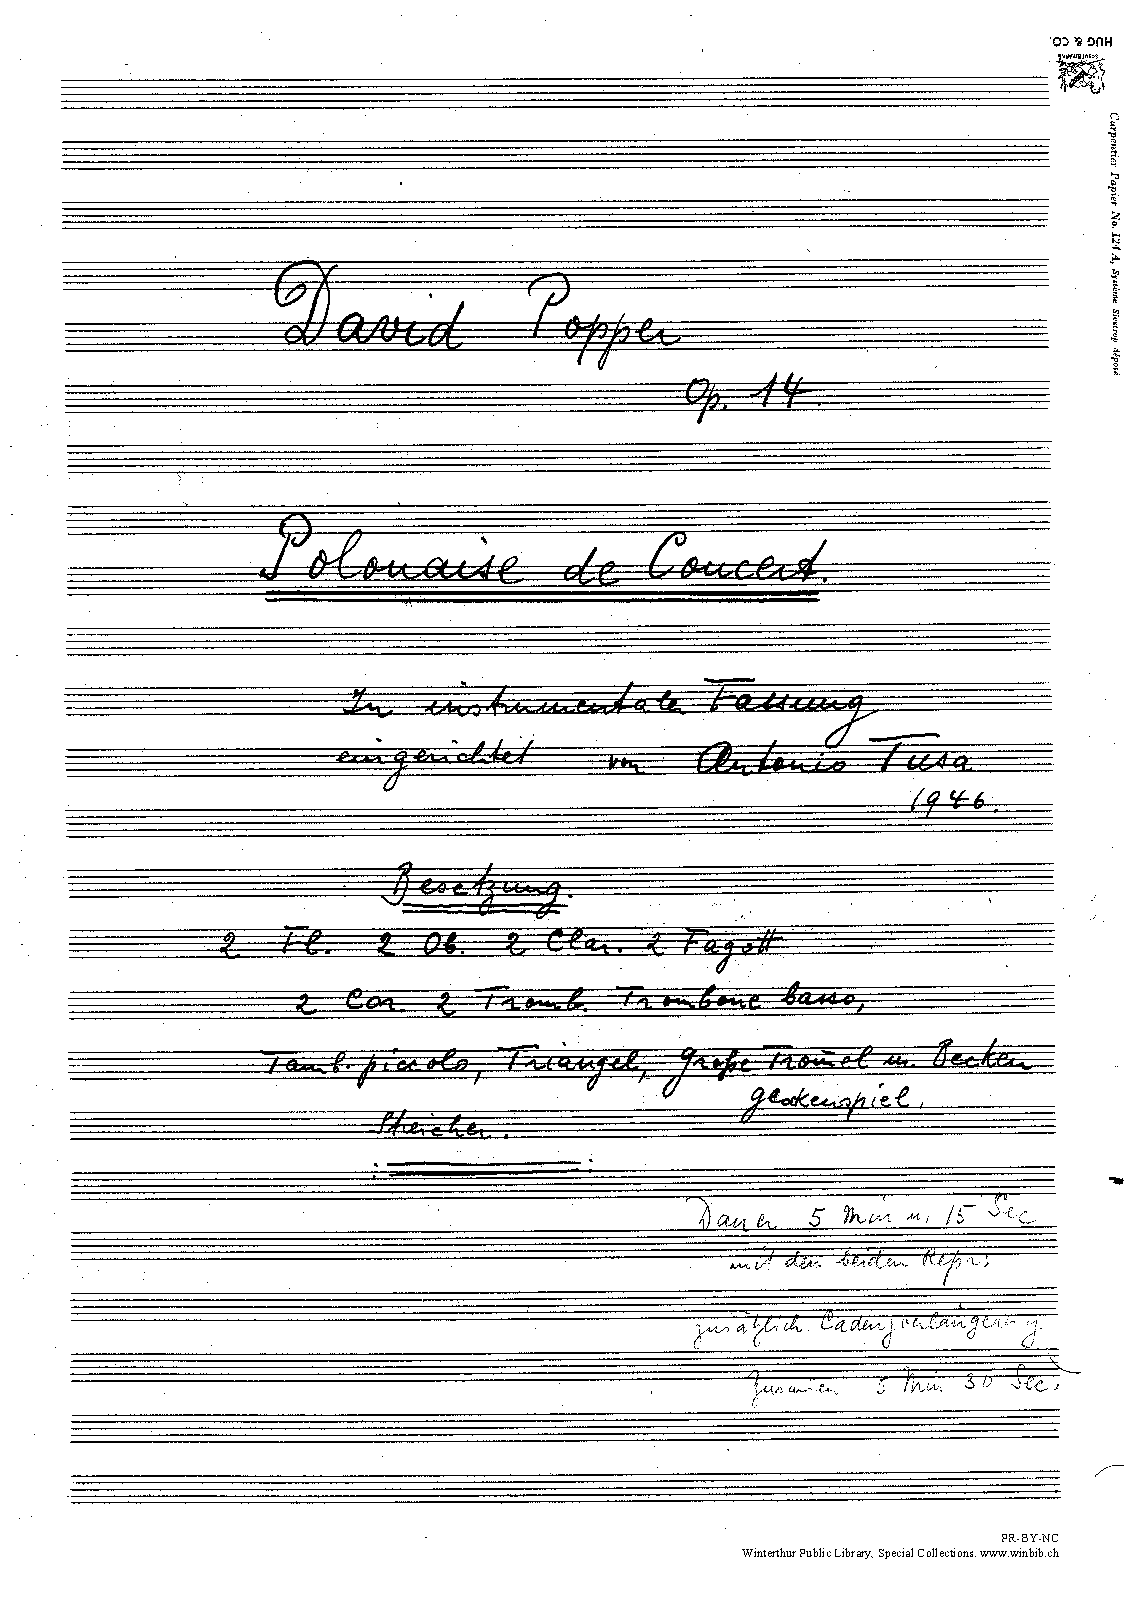 HUG & CO.
Carpentier Papier No. 124 A, Système Sieutrop déposé
David Popper
Op. 14.
Polonaise de Concert.
In instrumentaler Fassung
eingerichtet von Antonio Tusa
1946.
Besetzung.
2 Fl. 2 Ob. 2 Clar. 2 Fagott
2 Cor. 2 Tromb. Trombone basso,
Tamb. piccolo, Triangel, Große Trom̄el u. Becken
Glockenspiel.
Streicher.
Dauer 5 Min u. 15 Sec
mit den beiden Repr:
zusätzlich Cadenzverlängerung
Zusam̄en 5 Min 30 Sec.
PR-BY-NC
Winterthur Public Library, Special Collections. www.winbib.ch